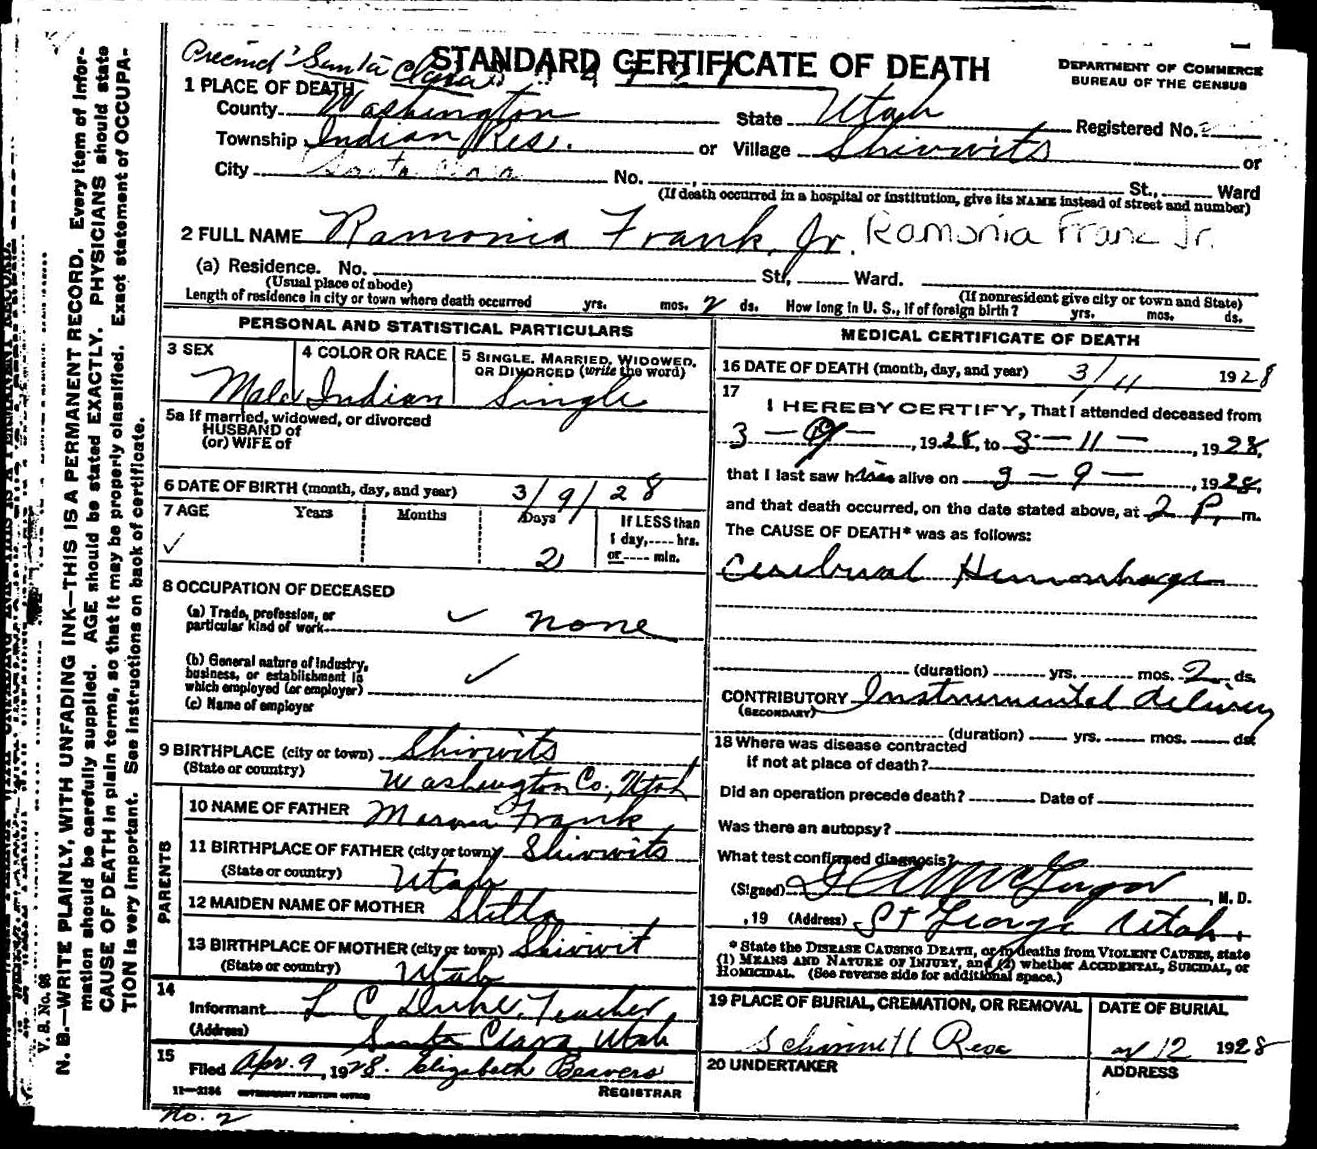 Precinct Santa Clara
STANDARD CERTIFICATE OF DEATH
DEPARTMENT OF COMMERCE
BUREAU OF THE CENSUS
1 PLACE OF DEATH
County Washington State Utah Registered No.
Township Indian Res. or Village Shivwits or
City Santa Clara No. St., Ward
(If death occurred in a hospital or institution, give its NAME instead of street and number)
2 FULL NAME Ramonia Frank, Jr. Ramonia Franc Jr.
(a) Residence. No. St., Ward.
(Usual place of abode) (If nonresident give city or town and State)
Length of residence in city or town where death occurred yrs. mos. 2 ds. How long in U. S., if of foreign birth? yrs. mos. ds.
PERSONAL AND STATISTICAL PARTICULARS
3 SEX Male
4 COLOR OR RACE Indian
5 SINGLE, MARRIED, WIDOWED, OR DIVORCED (write the word) Single
5a If married, widowed, or divorced
HUSBAND of
(or) WIFE of
6 DATE OF BIRTH (month, day, and year) 3/9/28
7 AGE Years Months Days If LESS than
1 day, ---- hrs.
2 or ---- min.
8 OCCUPATION OF DECEASED
(a) Trade, profession, or
particular kind of work ✓ none
(b) General nature of industry,
business, or establishment in
which employed (or employer) ✓
(c) Name of employer
9 BIRTHPLACE (city or town) Shivwits
(State or country) Washington Co., Utah
PARENTS
10 NAME OF FATHER Frank
11 BIRTHPLACE OF FATHER (city or town) Shivwits
(State or country) Utah
12 MAIDEN NAME OF MOTHER Stella
13 BIRTHPLACE OF MOTHER (city or town) Shivwit
(State or country) Utah
14
Informant L C Duke, Teacher
(Address) Santa Clara, Utah
15
Filed Apr. 9, 1928. Elizabeth Beavers
REGISTRAR
11—3184 GOVERNMENT PRINTING OFFICE
No. 2
MEDICAL CERTIFICATE OF DEATH
16 DATE OF DEATH (month, day, and year) 3/11 1928
17
I HEREBY CERTIFY, That I attended deceased from
3 - 9 -, 1928, to 3 - 11 -, 1928,
that I last saw him alive on 3 - 9 -, 1928,
and that death occurred, on the date stated above, at 2 P. m.
The CAUSE OF DEATH* was as follows:
Cerebral Hemorrhage
(duration) yrs. mos. 2 ds.
CONTRIBUTORY Instrumental delivery
(SECONDARY)
(duration) yrs. mos. ds.
18 Where was disease contracted
if not at place of death?
Did an operation precede death? Date of
Was there an autopsy?
What test confirmed diagnosis?
(Signed) McGregor, M. D.
, 19 (Address) St George Utah.
* State the DISEASE CAUSING DEATH, or in deaths from VIOLENT CAUSES, state
(1) MEANS AND NATURE OF INJURY, and (2) whether ACCIDENTAL, SUICIDAL, or
HOMICIDAL. (See reverse side for additional space.)
19 PLACE OF BURIAL, CREMATION, OR REMOVAL
DATE OF BURIAL
12 1928
20 UNDERTAKER
ADDRESS
V. S. No. 98
N. B.—WRITE PLAINLY, WITH UNFADING INK—THIS IS A PERMANENT RECORD. Every item of infor-
mation should be carefully supplied. AGE should be stated EXACTLY. PHYSICIANS should state
CAUSE OF DEATH in plain terms, so that it may be properly classified. Exact statement of OCCUPA-
TION is very important. See instructions on back of certificate.